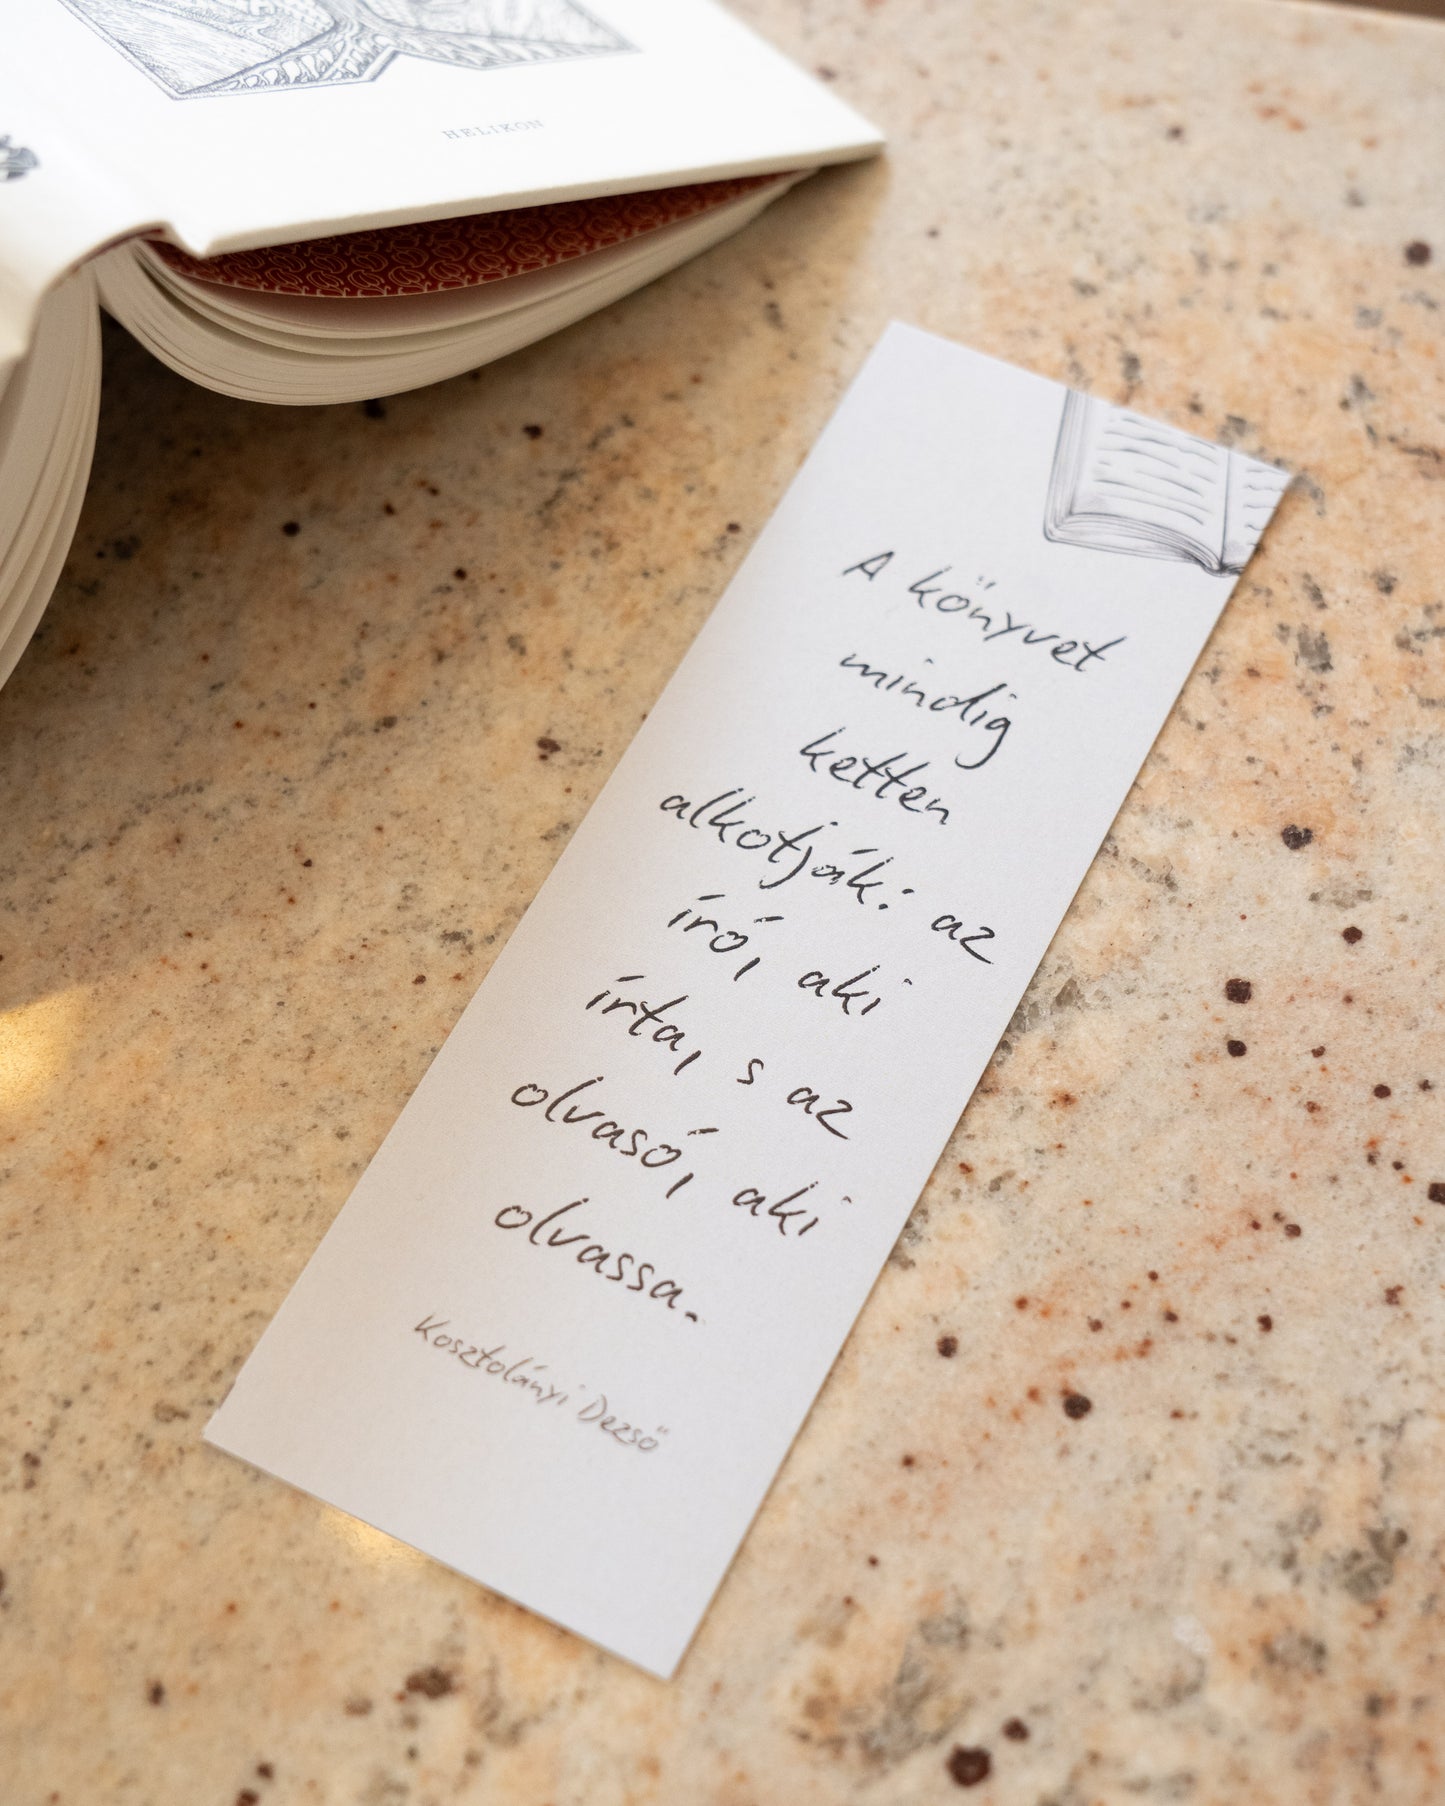 HELIKON
A könyvet
mindig
ketten
alkotják: az
író, aki
írta, s az
olvasó, aki
olvassa.
Kosztolányi Dezső